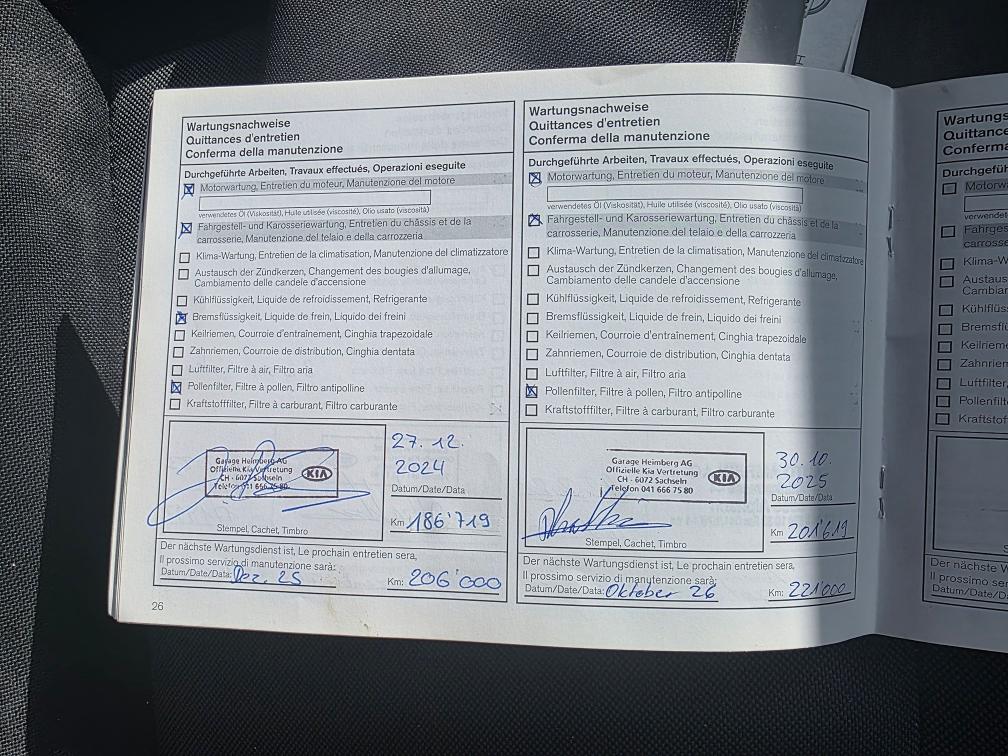 Wartungsnachweise
Quittances d'entretien
Conferma della manutenzione
Durchgeführte Arbeiten, Travaux effectués, Operazioni eseguite
Motorwartung, Entretien du moteur, Manutenzione del motore
verwendetes Öl (Viskosität), Huile utilisée (viscosité), Olio usato (viscosità)
Fahrgestell- und Karosseriewartung, Entretien du châssis et de la
carrosserie, Manutenzione del telaio e della carrozzeria
Klima-Wartung, Entretien de la climatisation, Manutenzione del climatizzatore
Austausch der Zündkerzen, Changement des bougies d'allumage,
Cambiamento delle candele d'accensione
Kühlflüssigkeit, Liquide de refroidissement, Refrigerante
Bremsflüssigkeit, Liquide de frein, Liquido dei freini
Keilriemen, Courroie d'entraînement, Cinghia trapezoidale
Zahnriemen, Courroie de distribution, Cinghia dentata
Luftfilter, Filtre à air, Filtro aria
Pollenfilter, Filtre à pollen, Filtro antipolline
Kraftstofffilter, Filtre à carburant, Filtro carburante
Garage Heimberg AG
Offizielle Kia Vertretung
CH - 6072 Sachseln
Telefon 041 666 75 80
KIA
Stempel, Cachet, Timbro
27. 12.
2024
Datum/Date/Data
Km 186'719
Der nächste Wartungsdienst ist, Le prochain entretien sera,
Il prossimo servizio di manutenzione sarà:
Datum/Date/Data: Dez. 25 Km: 206'000
26
Wartungsnachweise
Quittances d'entretien
Conferma della manutenzione
Durchgeführte Arbeiten, Travaux effectués, Operazioni eseguite
Motorwartung, Entretien du moteur, Manutenzione del motore
verwendetes Öl (Viskosität), Huile utilisée (viscosité), Olio usato (viscosità)
Fahrgestell- und Karosseriewartung, Entretien du châssis et de la
carrosserie, Manutenzione del telaio e della carrozzeria
Klima-Wartung, Entretien de la climatisation, Manutenzione del climatizzatore
Austausch der Zündkerzen, Changement des bougies d'allumage,
Cambiamento delle candele d'accensione
Kühlflüssigkeit, Liquide de refroidissement, Refrigerante
Bremsflüssigkeit, Liquide de frein, Liquido dei freini
Keilriemen, Courroie d'entraînement, Cinghia trapezoidale
Zahnriemen, Courroie de distribution, Cinghia dentata
Luftfilter, Filtre à air, Filtro aria
Pollenfilter, Filtre à pollen, Filtro antipolline
Kraftstofffilter, Filtre à carburant, Filtro carburante
Garage Heimberg AG
Offizielle Kia Vertretung
CH - 6072 Sachseln
Telefon 041 666 75 80
KIA
Stempel, Cachet, Timbro
30. 10.
2025
Datum/Date/Data
Km 201'619
Der nächste Wartungsdienst ist, Le prochain entretien sera,
Il prossimo servizio di manutenzione sarà:
Datum/Date/Data: Oktober 26 Km: 221'000
Wartungs
Quittanc
Conferma
Durchgef
Motorw
verwendet
Fahrges
carross
Klima-W
Austaus
Cambiar
Kühlflüss
Bremsflü
Keilrieme
Zahnriem
Luftfilter,
Pollenfilt
Kraftstof
Der nächste W
Il prossimo ser
Datum/Date/Da